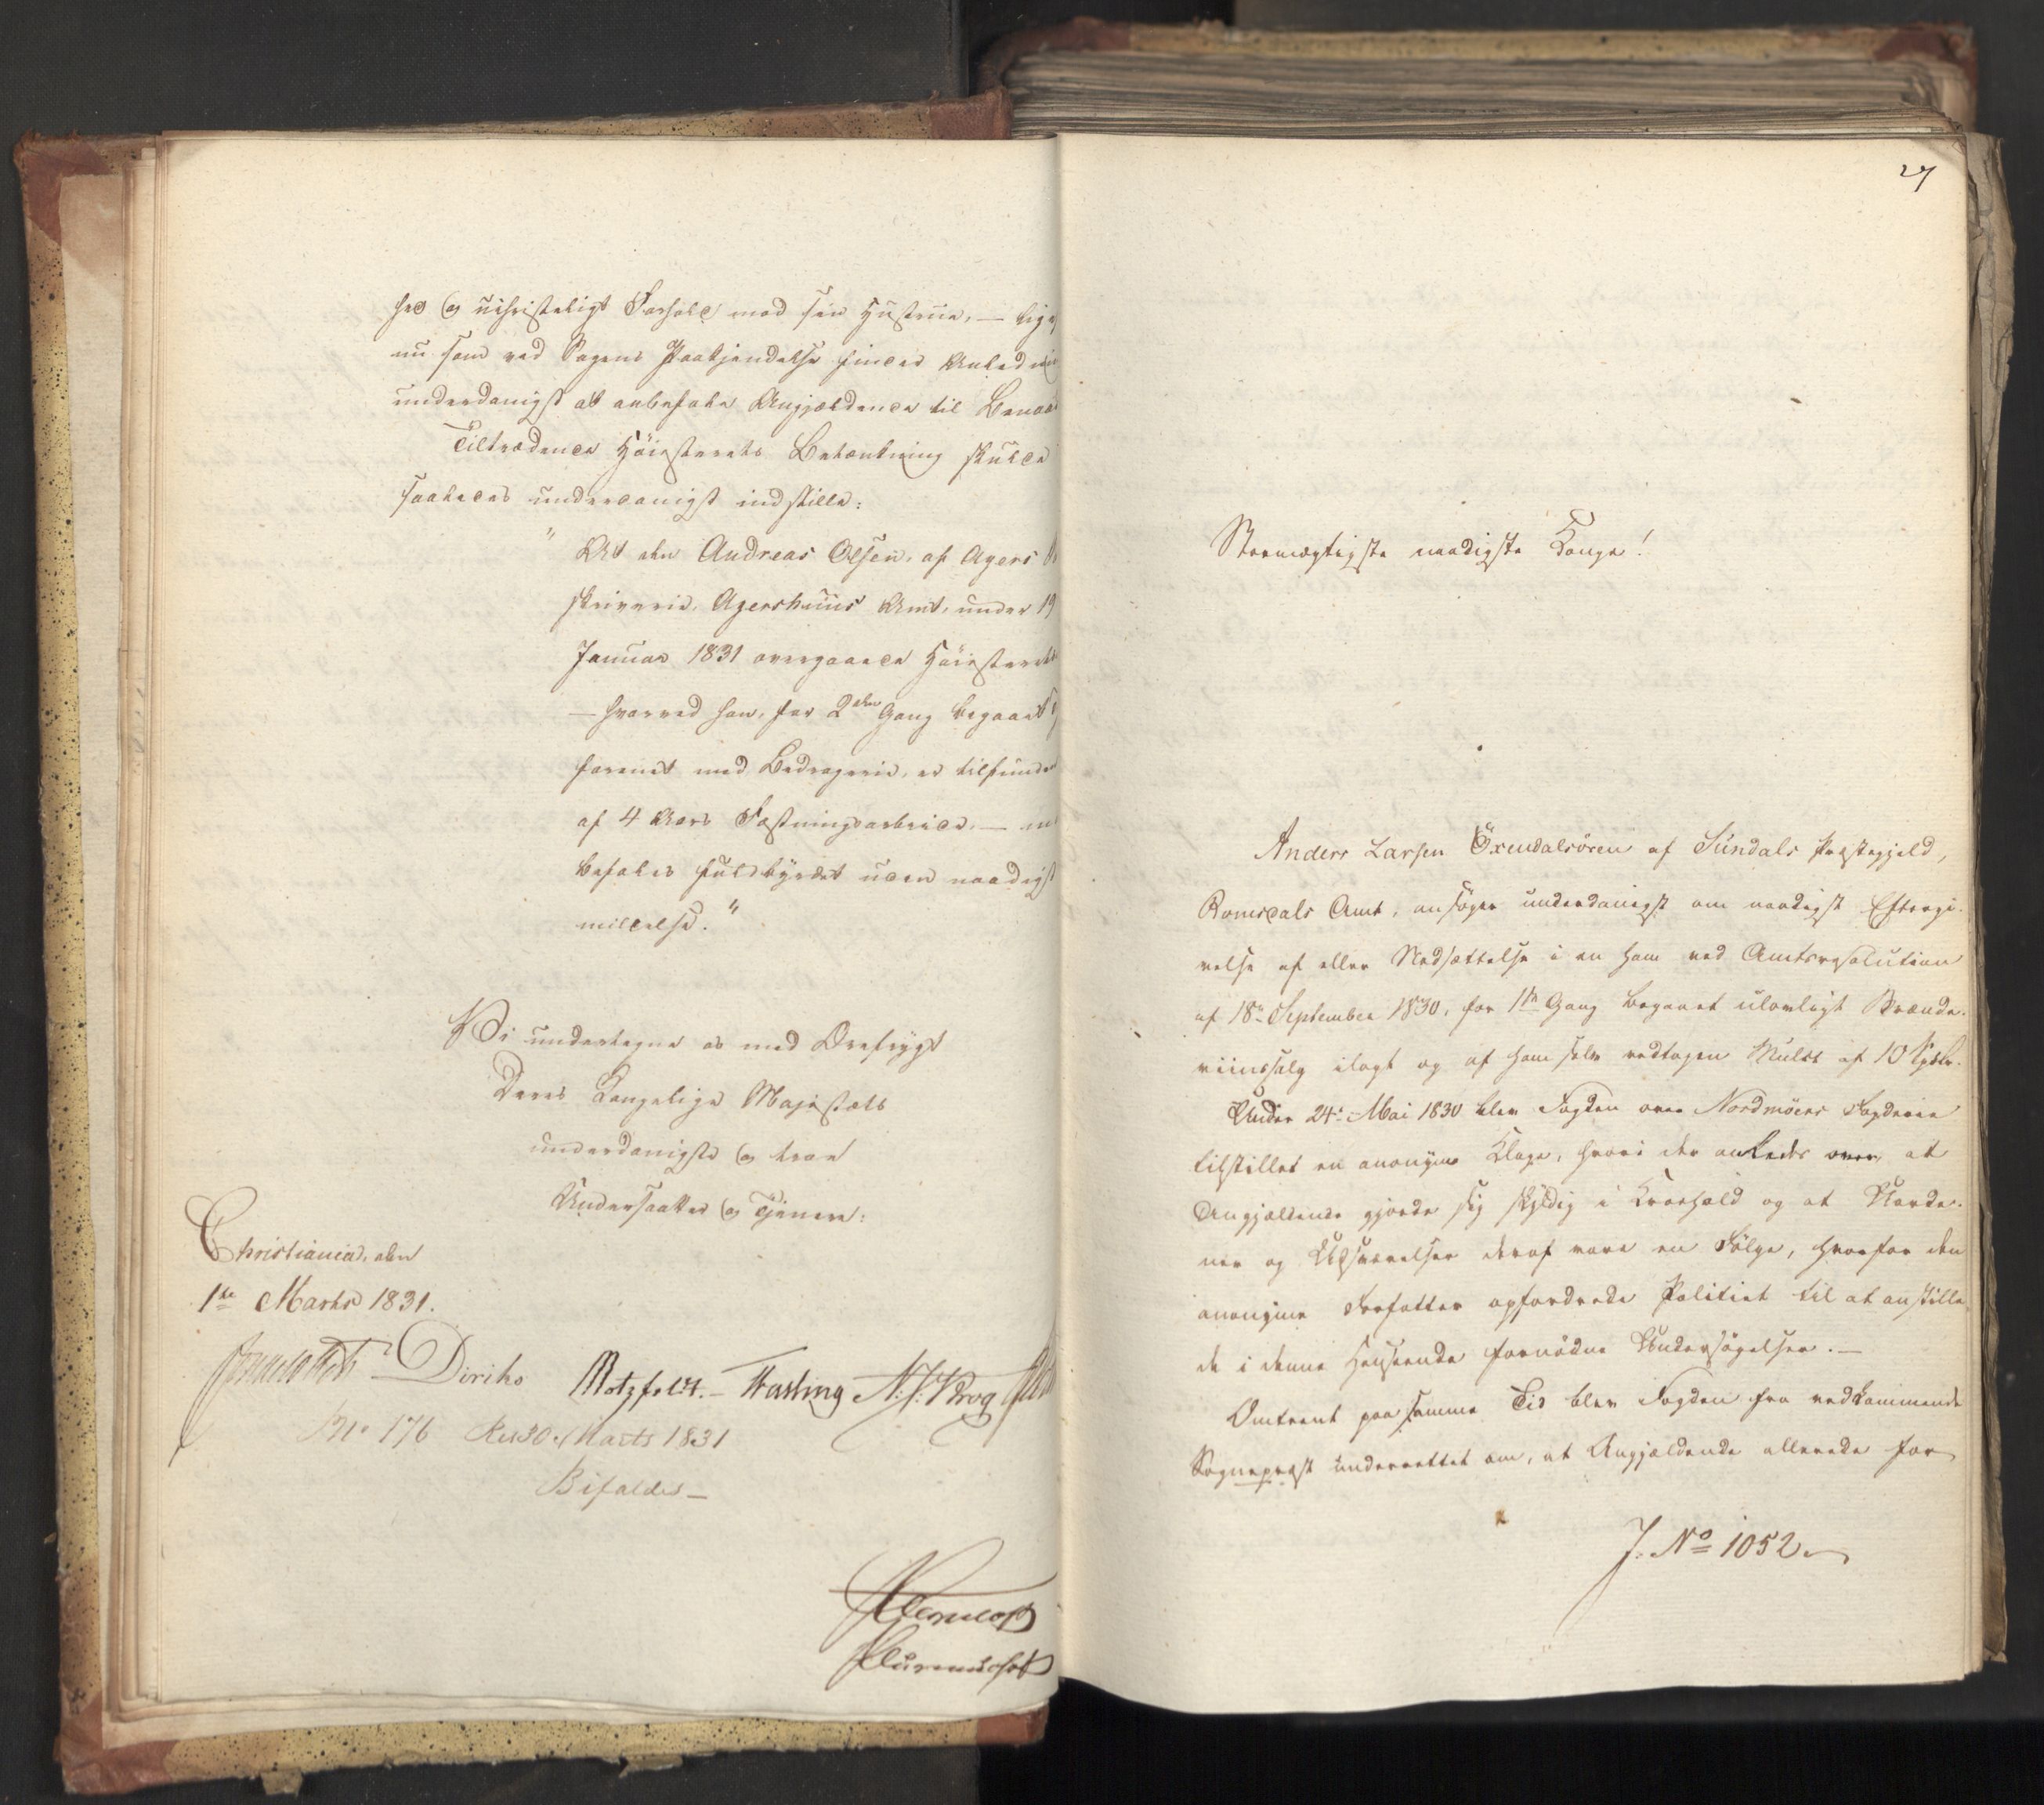 hed og uchristeligt Forhold mod sin Hustrue, — lige
nu som ved Sagens Paakjendelse findes Anledni
underdanigst at anbefale Angjældende til Benaad
Tiltrædende Höiesterets Betænkning skulde
saaledes underdanigst indstille:
" At den Andreas Olsen, af Agers
skriverie, Agershuus Amt, under 19
Januar 1831 overgaaede Höiesterets
— hvorved han, for 2den Gang begaaet
forenet med Bedragerie, er tilfunden
af 4 Aars Fæstningsarbeide, —
befales fuldbyrdet uden naadigst
mildelse."
Vi undertegne os med Ærefrygt
Deres Kongelige Majestæts
underdanigste og troe
Undersaatter og Tjenere:
Christiania, den
1ste Marts 1831.
Diriks Motzfeldt. — Fasting N. J. Krog
No 176 Res 30. Marts 1831
Bifaldes —
27
Stormægtigste naadigste Konge!
Anders Larsen Öxendalsören af Sundals Præstegjeld,
Romsdals Amt, ansöger underdanigst om naadigst Eftergi-
velse af eller Nedsættelse i en ham ved Amtsresolution
af 18de September 1830, for 1ste Gang begaaet ulovligt Brænde-
viinssalg ilagt og af ham selv vedtagen Mulct af 10 Spdlr.
Under 24de Mai 1830 blev Fogden over Nordmöers Fogderie
tilstillet en anonym Klage, hvori der ankedes over, at
Angjældende gjorde sig skyldig i Kroehold og at Uorde-
ner og Udsvævelser deraf vare en Fölge, hvorfor den
anonyme Forfatter opfordrede Politiet til at anstille
de i denne Henseende fornödne Undersögelser. —
Omtrent paa samme Tid blev Fogden fra vedkommende
Sognepræst underrettet om, at Angjældende allerede for
J. No 1052